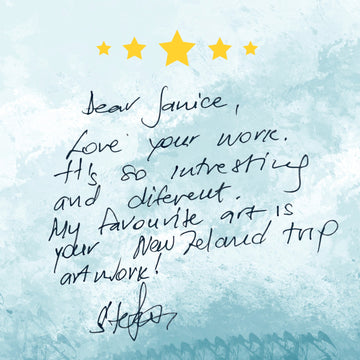 Dear Janice,
Love your work.
It's so intresting
and diferent.
My favourite art is
your New Zeland trip
artwork!